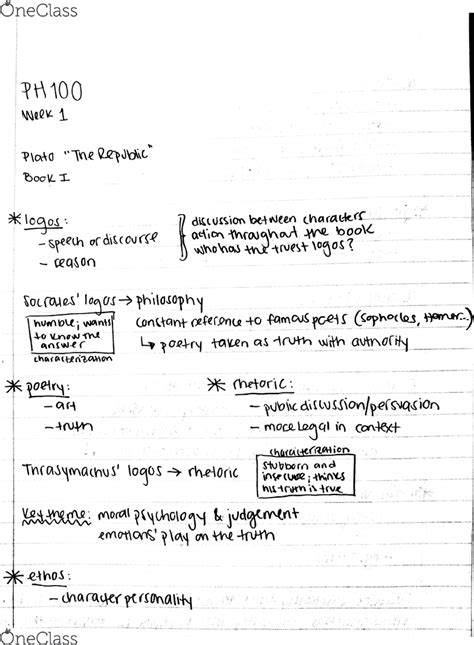 OneClass
PH100
Week 1
Plato "The Republic"
Book I
* logos:
- speech or discourse
- reason
discussion between characters
action throughout the book
who has the truest logos?
Socrates' logos → philosophy
humble; wants
to know the
answer
characterization
constant reference to famous poets (Sophocles, Homer...)
↳ poetry taken as truth with authority
* poetry:
- art
- truth
* rhetoric:
- public discussion/persuasion
- more legal in context
Thrasymachus' logos → rhetoric
characterization
stubborn and
insecure; thinks
his truth is true
Key theme: moral psychology & judgement
emotions' play on the truth
* ethos:
- character personality
OneClass